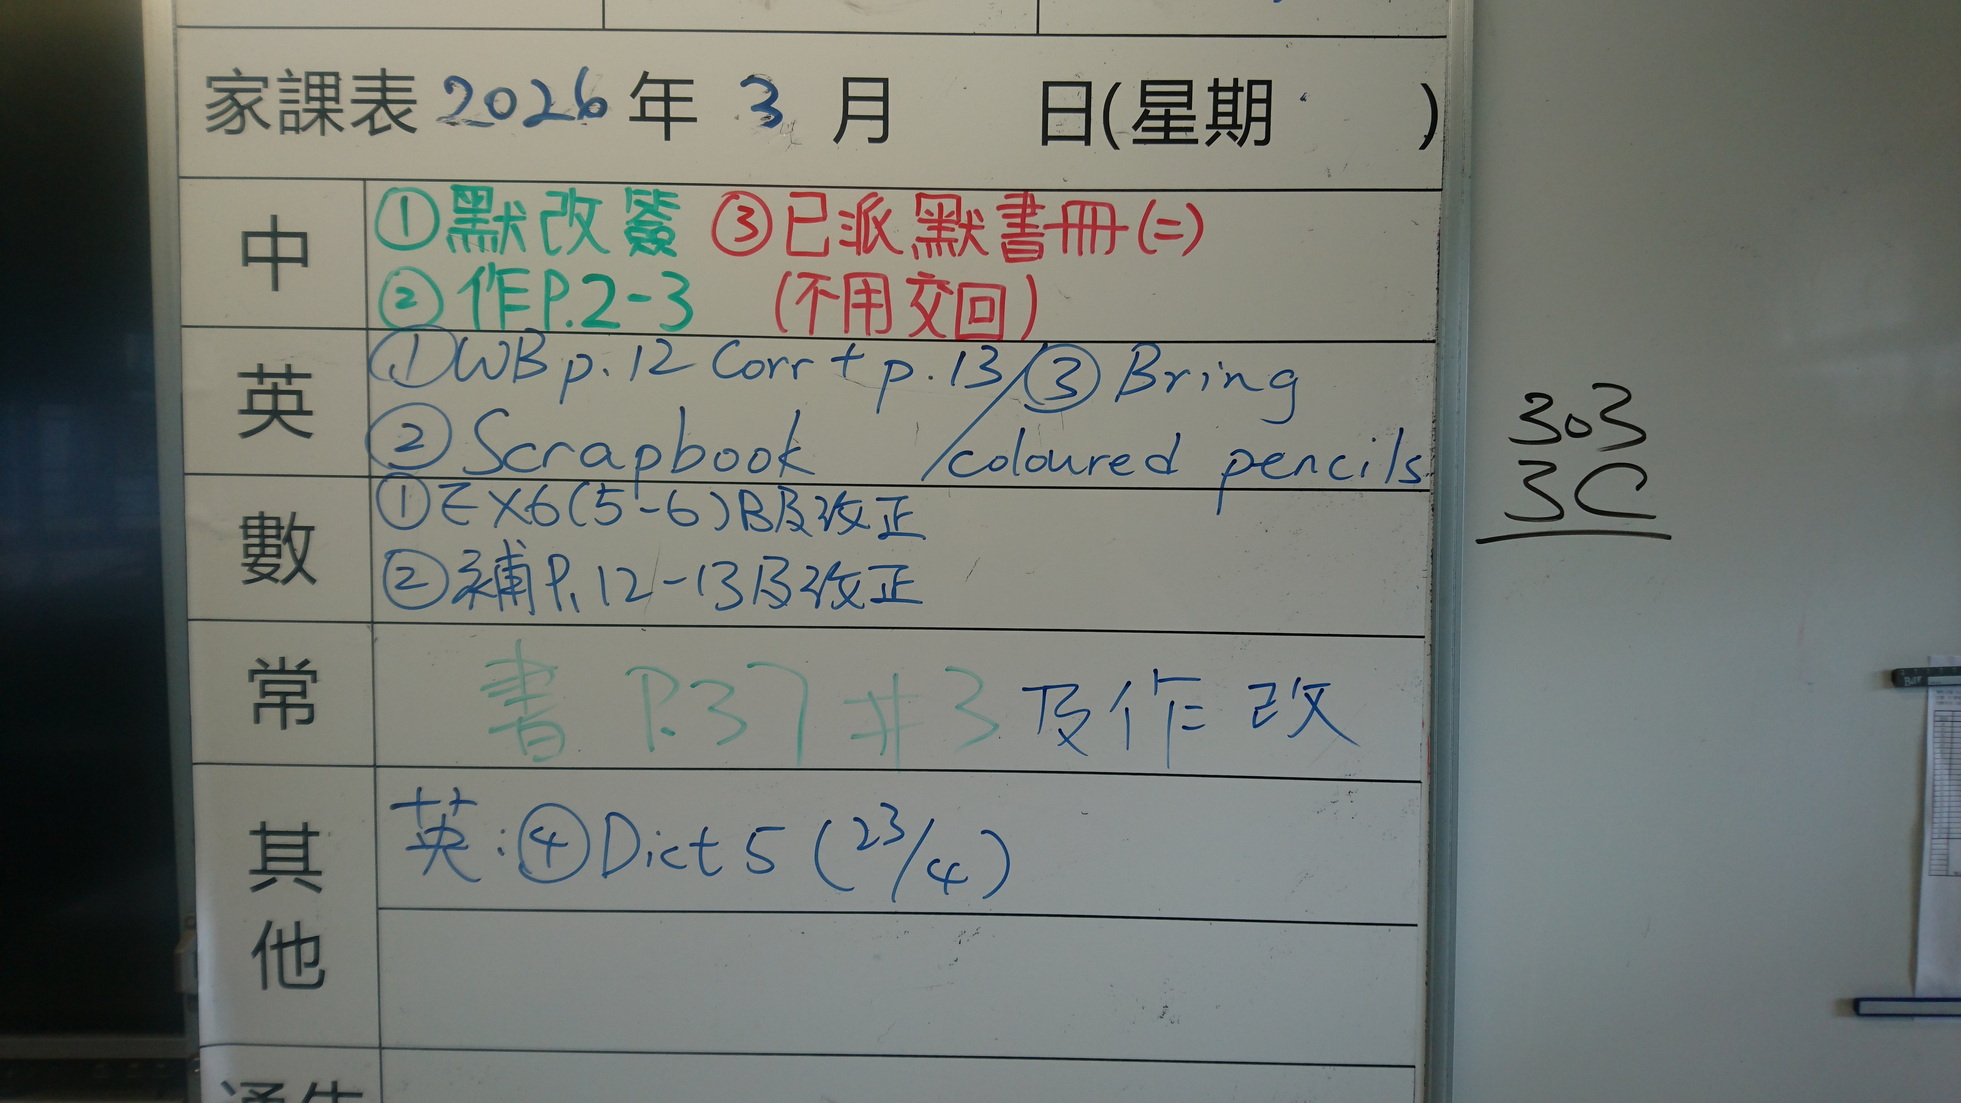 家課表 2026 年 3 月 日(星期 )
中
①默改簽 ③已派默書冊(二)
②作P.2-3 (不用交回)
英
①WB p.12 Corr + p.13/③Bring
②Scrapbook /coloured pencils
數
①EX6(5-6)B及改正
②補P.12-13及改正
常
書 P.37 #3 及作改
其他
英:④Dict 5 (23/4)
通告
303
3C